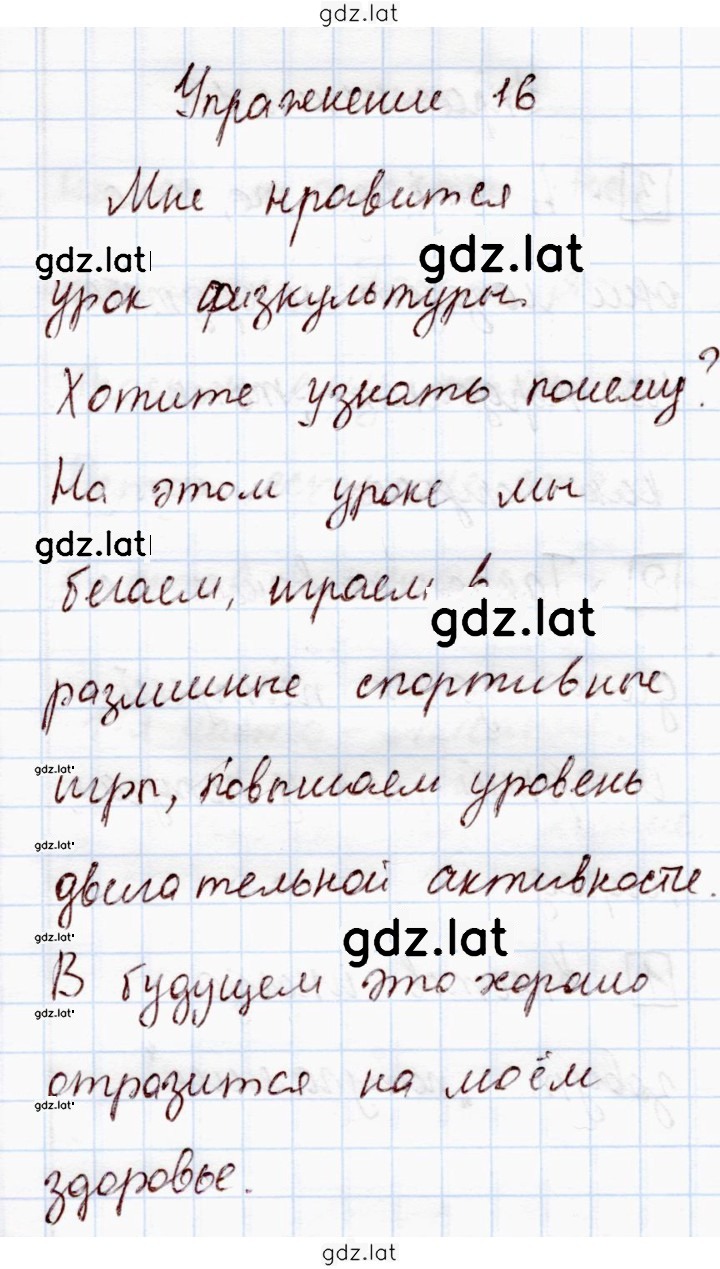 gdz.lat
Упражнение 16
Мне нравится
gdz.lat gdz.lat
урок физкультуры.
Хотите узнать почему?
На этом уроке мы
gdz.lat
бегаем, играем в
gdz.lat
различные спортивные
gdz.lat
игры, повышаем уровень
gdz.lat
двигательной активности.
gdz.lat gdz.lat
В будущем это хорошо
gdz.lat
отразится на моём
gdz.lat
здоровье.
gdz.lat